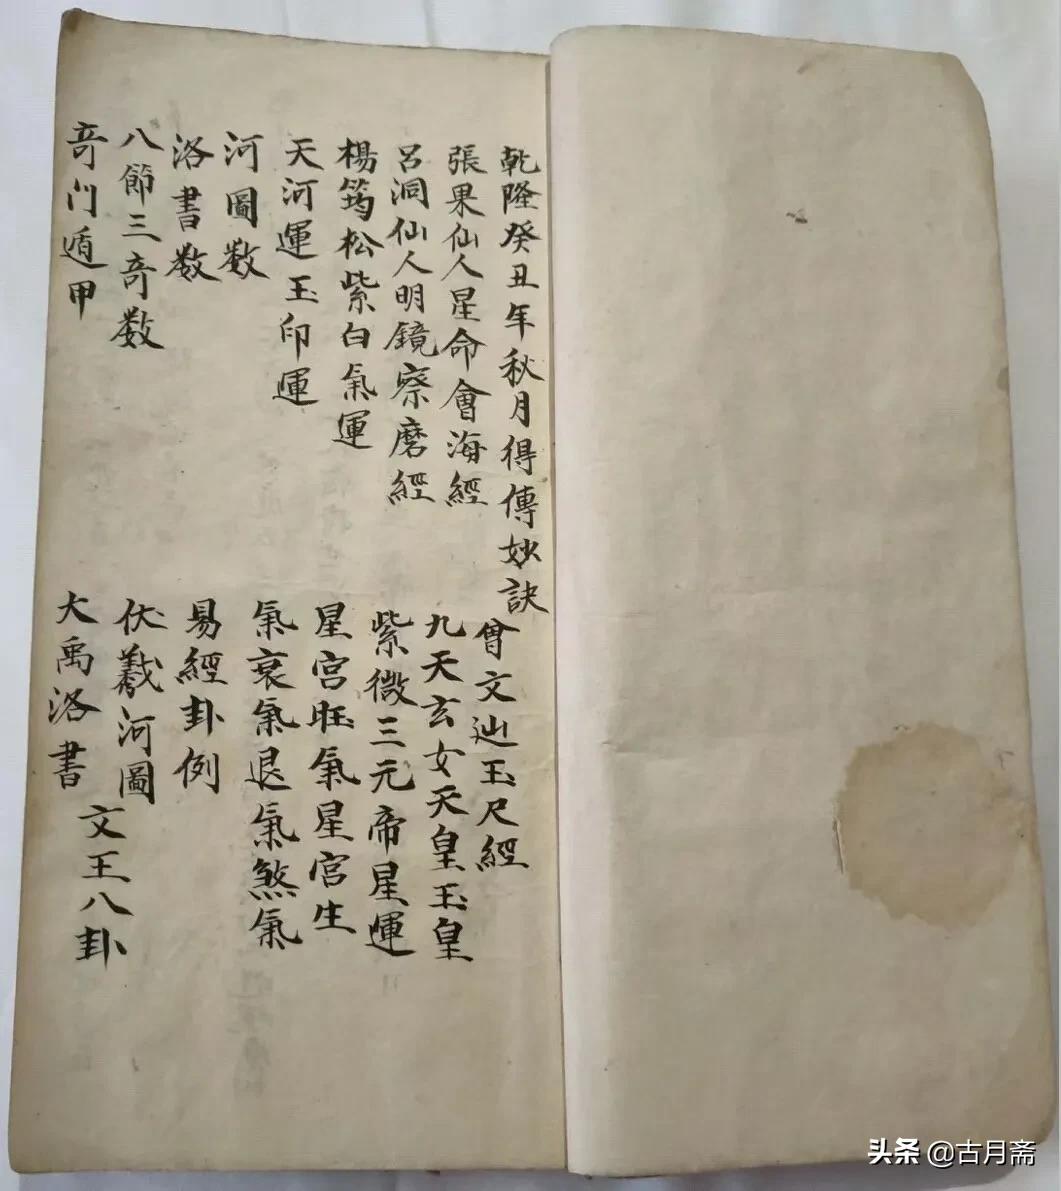 乾隆癸丑年秋月得傳妙訣
張果仙人星命會海經
呂洞仙人明鏡察磨經
楊筠松紫白氣運
天河運玉印運
河圖数
洛書数
八節三竒数
竒门遁甲
曾文辿玉尺經
九天玄女天皇玉皇
紫微三元帝星運
星宫旺氣星宫生
氣衰氣退氣煞氣
易經卦例
伏羲河圖
大禹洛書
文王八卦
头条 @古月斋